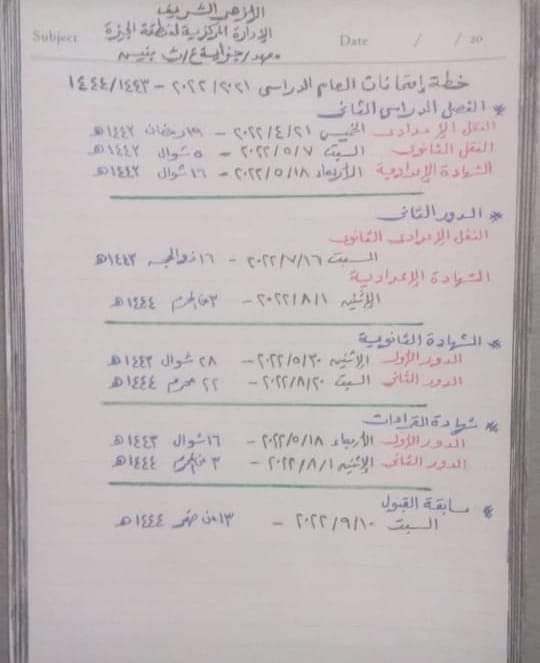 الأزهر الشريف
الإدارة المركزية لمنطقة الجيزة
معهد/
Subject
Date / / 20
خطة إمتحانات العام الدراسى ٢٠٢١/٢٠٢٢ - ١٤٤٣/١٤٤٤
* الفصل الدراسى الثانى
النقل الإعدادى الخميس ٢٠٢٢/٤/٢١ - ١٩ رمضان ١٤٤٣هـ
النقل الثانوى السبت ٢٠٢٢/٥/٧ - ٥ شوال ١٤٤٣هـ
الشهادة الإعدادية الأربعاء ٢٠٢٢/٥/١٨ - ١٦ شوال ١٤٤٣هـ
* الدور الثانى
النقل الإعدادى الثانوى
السبت ٢٠٢٢/٧/١٦ - ١٦ ذو الحجه ١٤٤٣هـ
الشهادة الإعدادية
الإثنين ٢٠٢٢/٨/١ - ٣ من المحرم ١٤٤٤هـ
* الشهادة الثانوية
الدور الأول الإثنين ٢٠٢٢/٥/٣٠ - ٢٨ شوال ١٤٤٣هـ
الدور الثانى السبت ٢٠٢٢/٨/٢٠ - ٢٢ محرم ١٤٤٤هـ
* شهادة القراءات
الدور الأول الأربعاء ٢٠٢٢/٥/١٨ - ١٦ شوال ١٤٤٣هـ
الدور الثانى الإثنين ٢٠٢٢/٨/١ - ٣ من المحرم ١٤٤٤هـ
* سابقة القبول
السبت ٢٠٢٢/٩/١٠ - ١٣ من صفر ١٤٤٤هـ